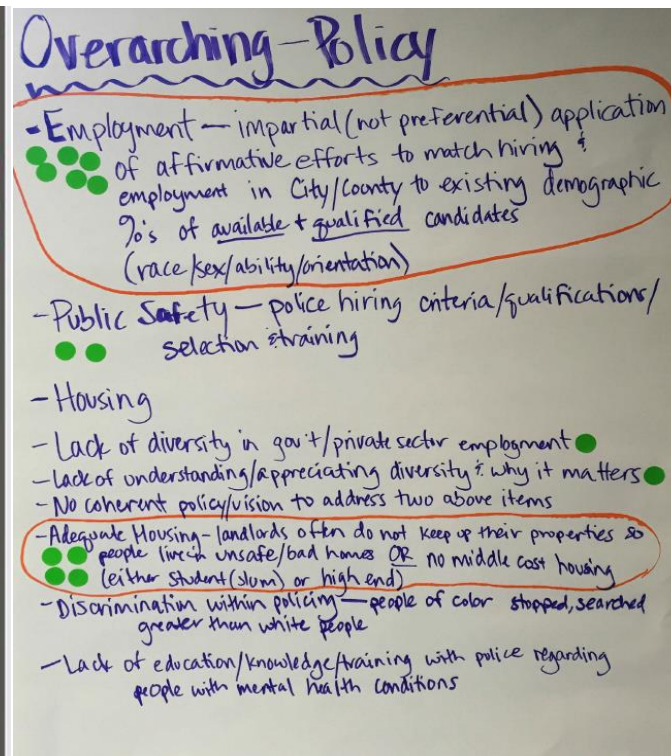 Overarching-Policy
-Employment — impartial (not preferential) application
of affirmative efforts to match hiring &
employment in City/County to existing demographic
%'s of available + qualified candidates
(race/sex/ability/orientation)
-Public Safety — police hiring criteria/qualifications/
selection & training
- Housing
- Lack of diversity in gov't/private sector employment
- Lack of understanding/appreciating diversity & why it matters
- No coherent policy/vision to address two above items
-Adequate Housing - landlords often do not keep up their properties so
people live in unsafe/bad homes OR no middle cost housing
(either student (slum) or high end)
-Discrimination within policing — people of color stopped, searched
greater than white people
-Lack of education/knowledge/training with police regarding
people with mental health conditions